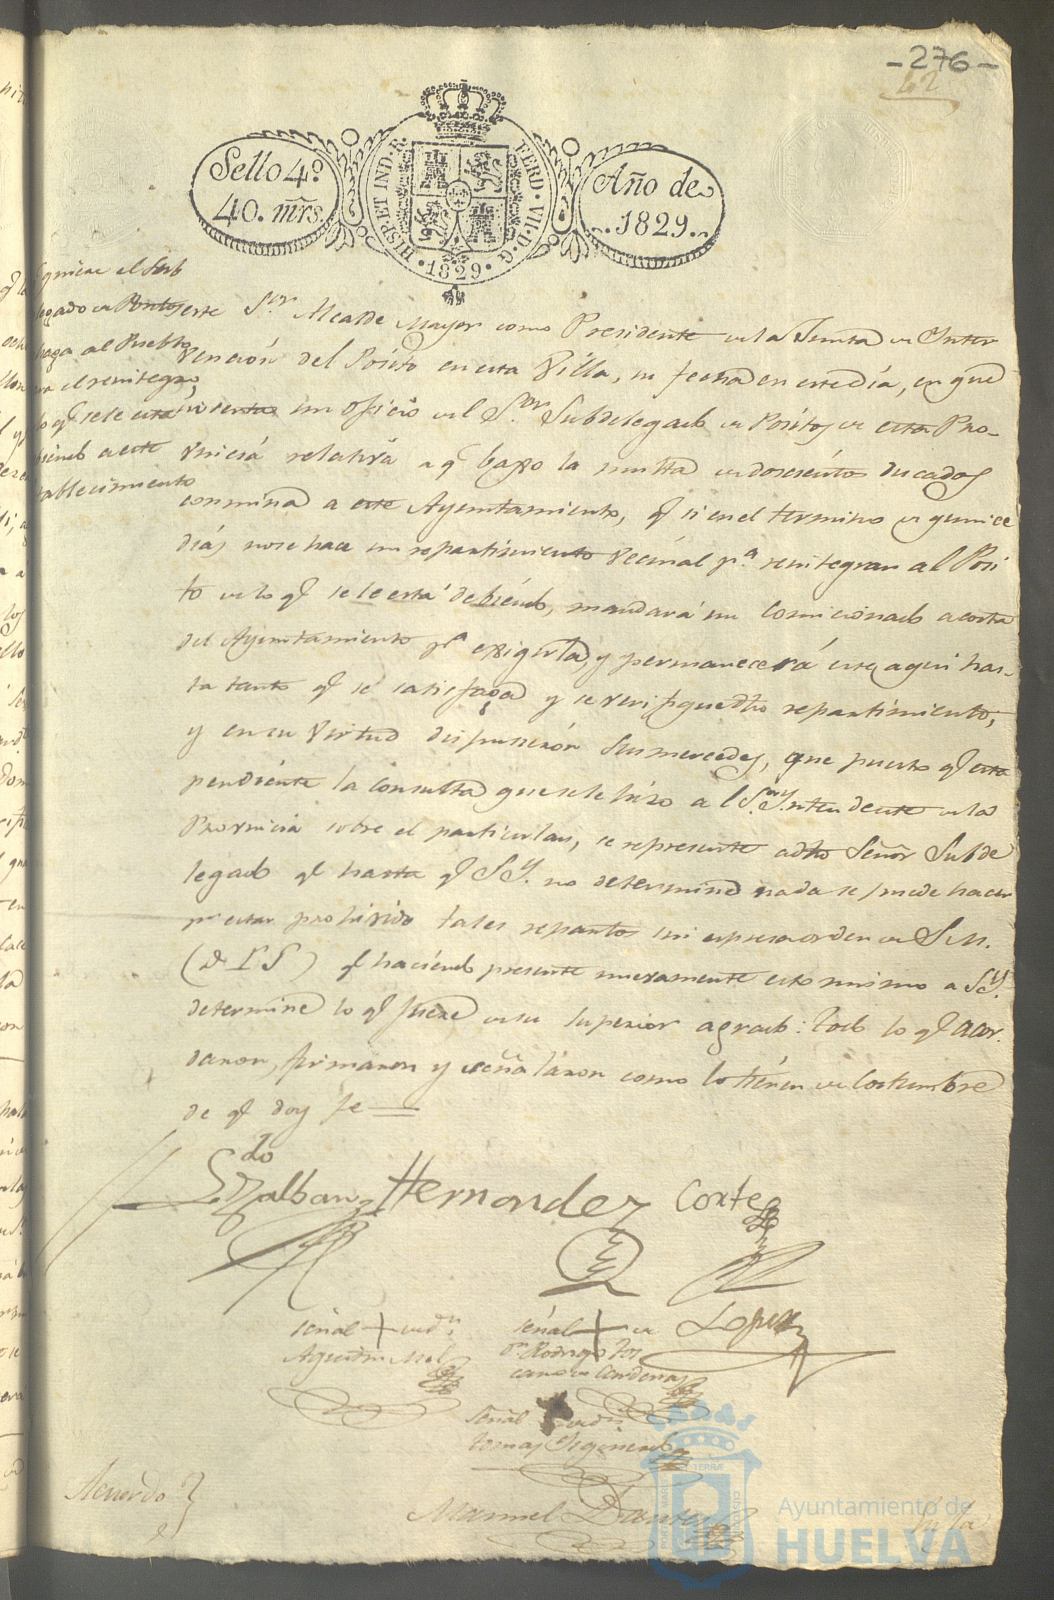 -276-
42
Sello 4º
40. mrs.
HISP. ET IND. R. FERD. VII. D. G.
1829.
Año de
1829.
quiere el Sub
legado de Positos
haga al Pueblo
el reintegro,
lo q.e se le esta
debiendo a este
establecimiento
este S.or Alcalde Mayor como Presidente de la Junta de Inter
vencion del Pósito en esta Villa, su fecha en este dia, en que
inserta un oficio del S.or Subdelegado de Pósitos de esta Pro-
vincia relativa a q.e baxo la multa de doscientos ducados
conmina a este Ayuntamiento, q.e si en el termino de quince
dias no se hace un repartimiento vecinal p.a reintegrar al Posi
to de lo q.e se le está debiendo, mandará un Comicionado a costa
del Ayuntamiento p.a exigirla, y permanecerá este aqui has-
ta tanto q.e se satisfaga y se verifique dho repartimiento,
y en su virtud dispusieron Sus mercedes, que puesto q.e esta
pendiente la consulta que se le hizo al S.or Yntendente de la
Provincia sobre el particular, se represente a dho Señor Subde
legado q.e hasta q.e S.Y. no determine nada se puede hacer
p.r estar prohivido tales repartos sin espresa orden de S.M.
(D. L. G.) q.e haciendo presente nuevamente esto mismo a S.Y.
determine lo q.e fuere de su superior agrado: Todo lo q.e acor-
daron, firmaron y señalaron como lo tienen de costumbre
de q.e doy fe
Hernandez Corte
señal + de d.n señal + de Lopez
Agustin d.n Rodrigo Tos
cano de Cardenas
señal + de d.n
Tomas
Manuel
Acuerdo
Ayuntamiento de
HUELVA